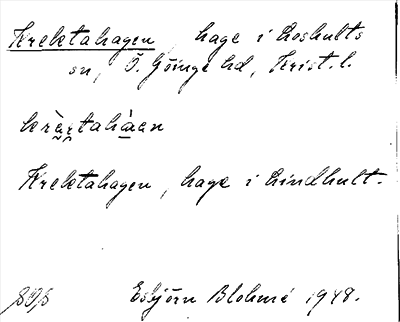 Krektahagen, hage i Loshults
sn, Ö. Göinge hd, Krist. l.
Krektahagen, hage i Lindhult.
Esbjörn Blohmé 1948.